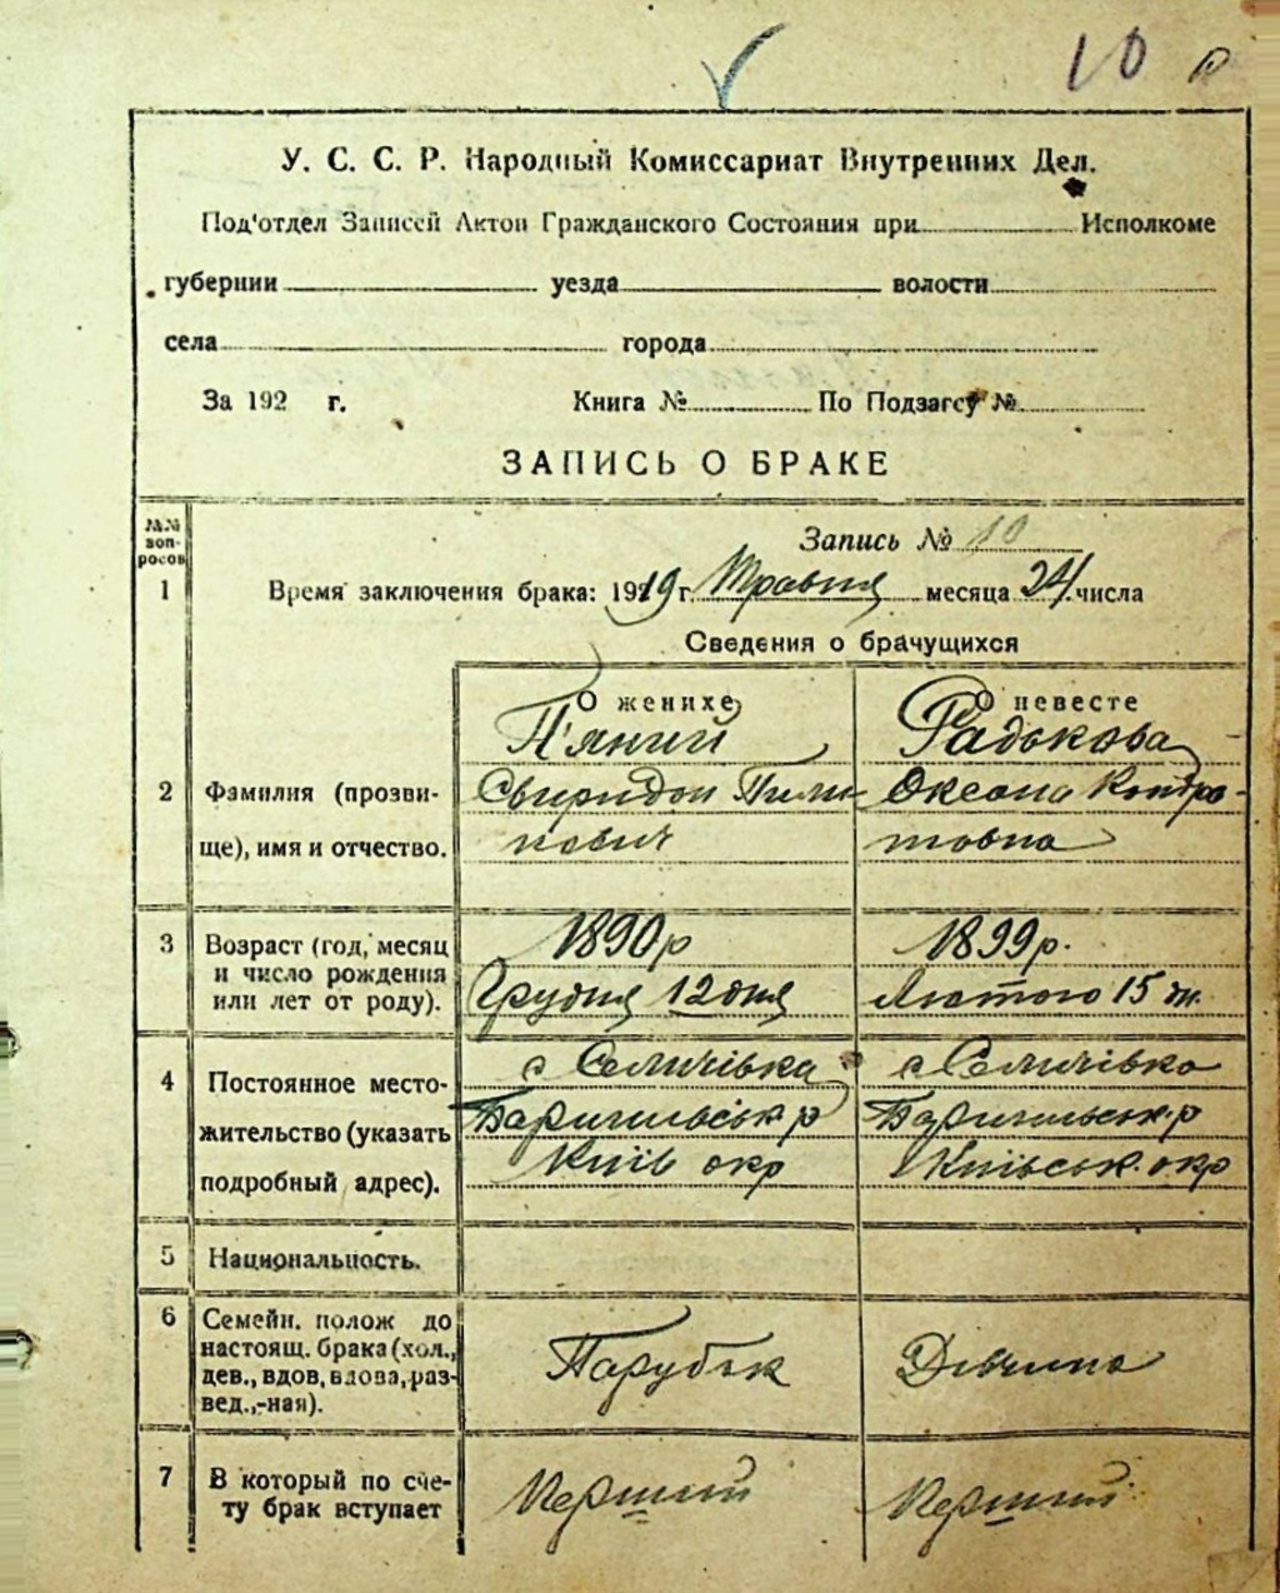 10
У. С. С. Р. Народный Комиссариат Внутренних Дел.
Под'отдел Записей Актов Гражданского Состояния при Исполкоме
губернии уезда волости
села города
За 192 г. Книга № По Подзагсу №
ЗАПИСЬ О БРАКЕ
№№ вопросов
Запись № 10
1 Время заключения брака: 1919 г. Травня месяца 24 числа
Сведения о брачущихся
О женихе О невесте
П'яний Радькова
2 Фамилия (прозви- Свиридон Пили- Оксана Контра-
ще), имя и отчество. пович товна
3 Возраст (год, месяц 1890 р 1899 р.
и число рождения Грудня 12 дня Лютого 15 дн.
или лет от роду).
4 Постоянное место- с Селичівка с Селичівка
жительство (указать Баришівськ р Баришівськ. р
подробный адрес). Київ окр Київськ. окр
5 Национальность.
6 Семейн. полож до
настоящ. брака (хол., Парубок Дівчина
дев., вдов, вдова, раз-
вед.,-ная).
7 В который по сче- Перший Перший
ту брак вступает